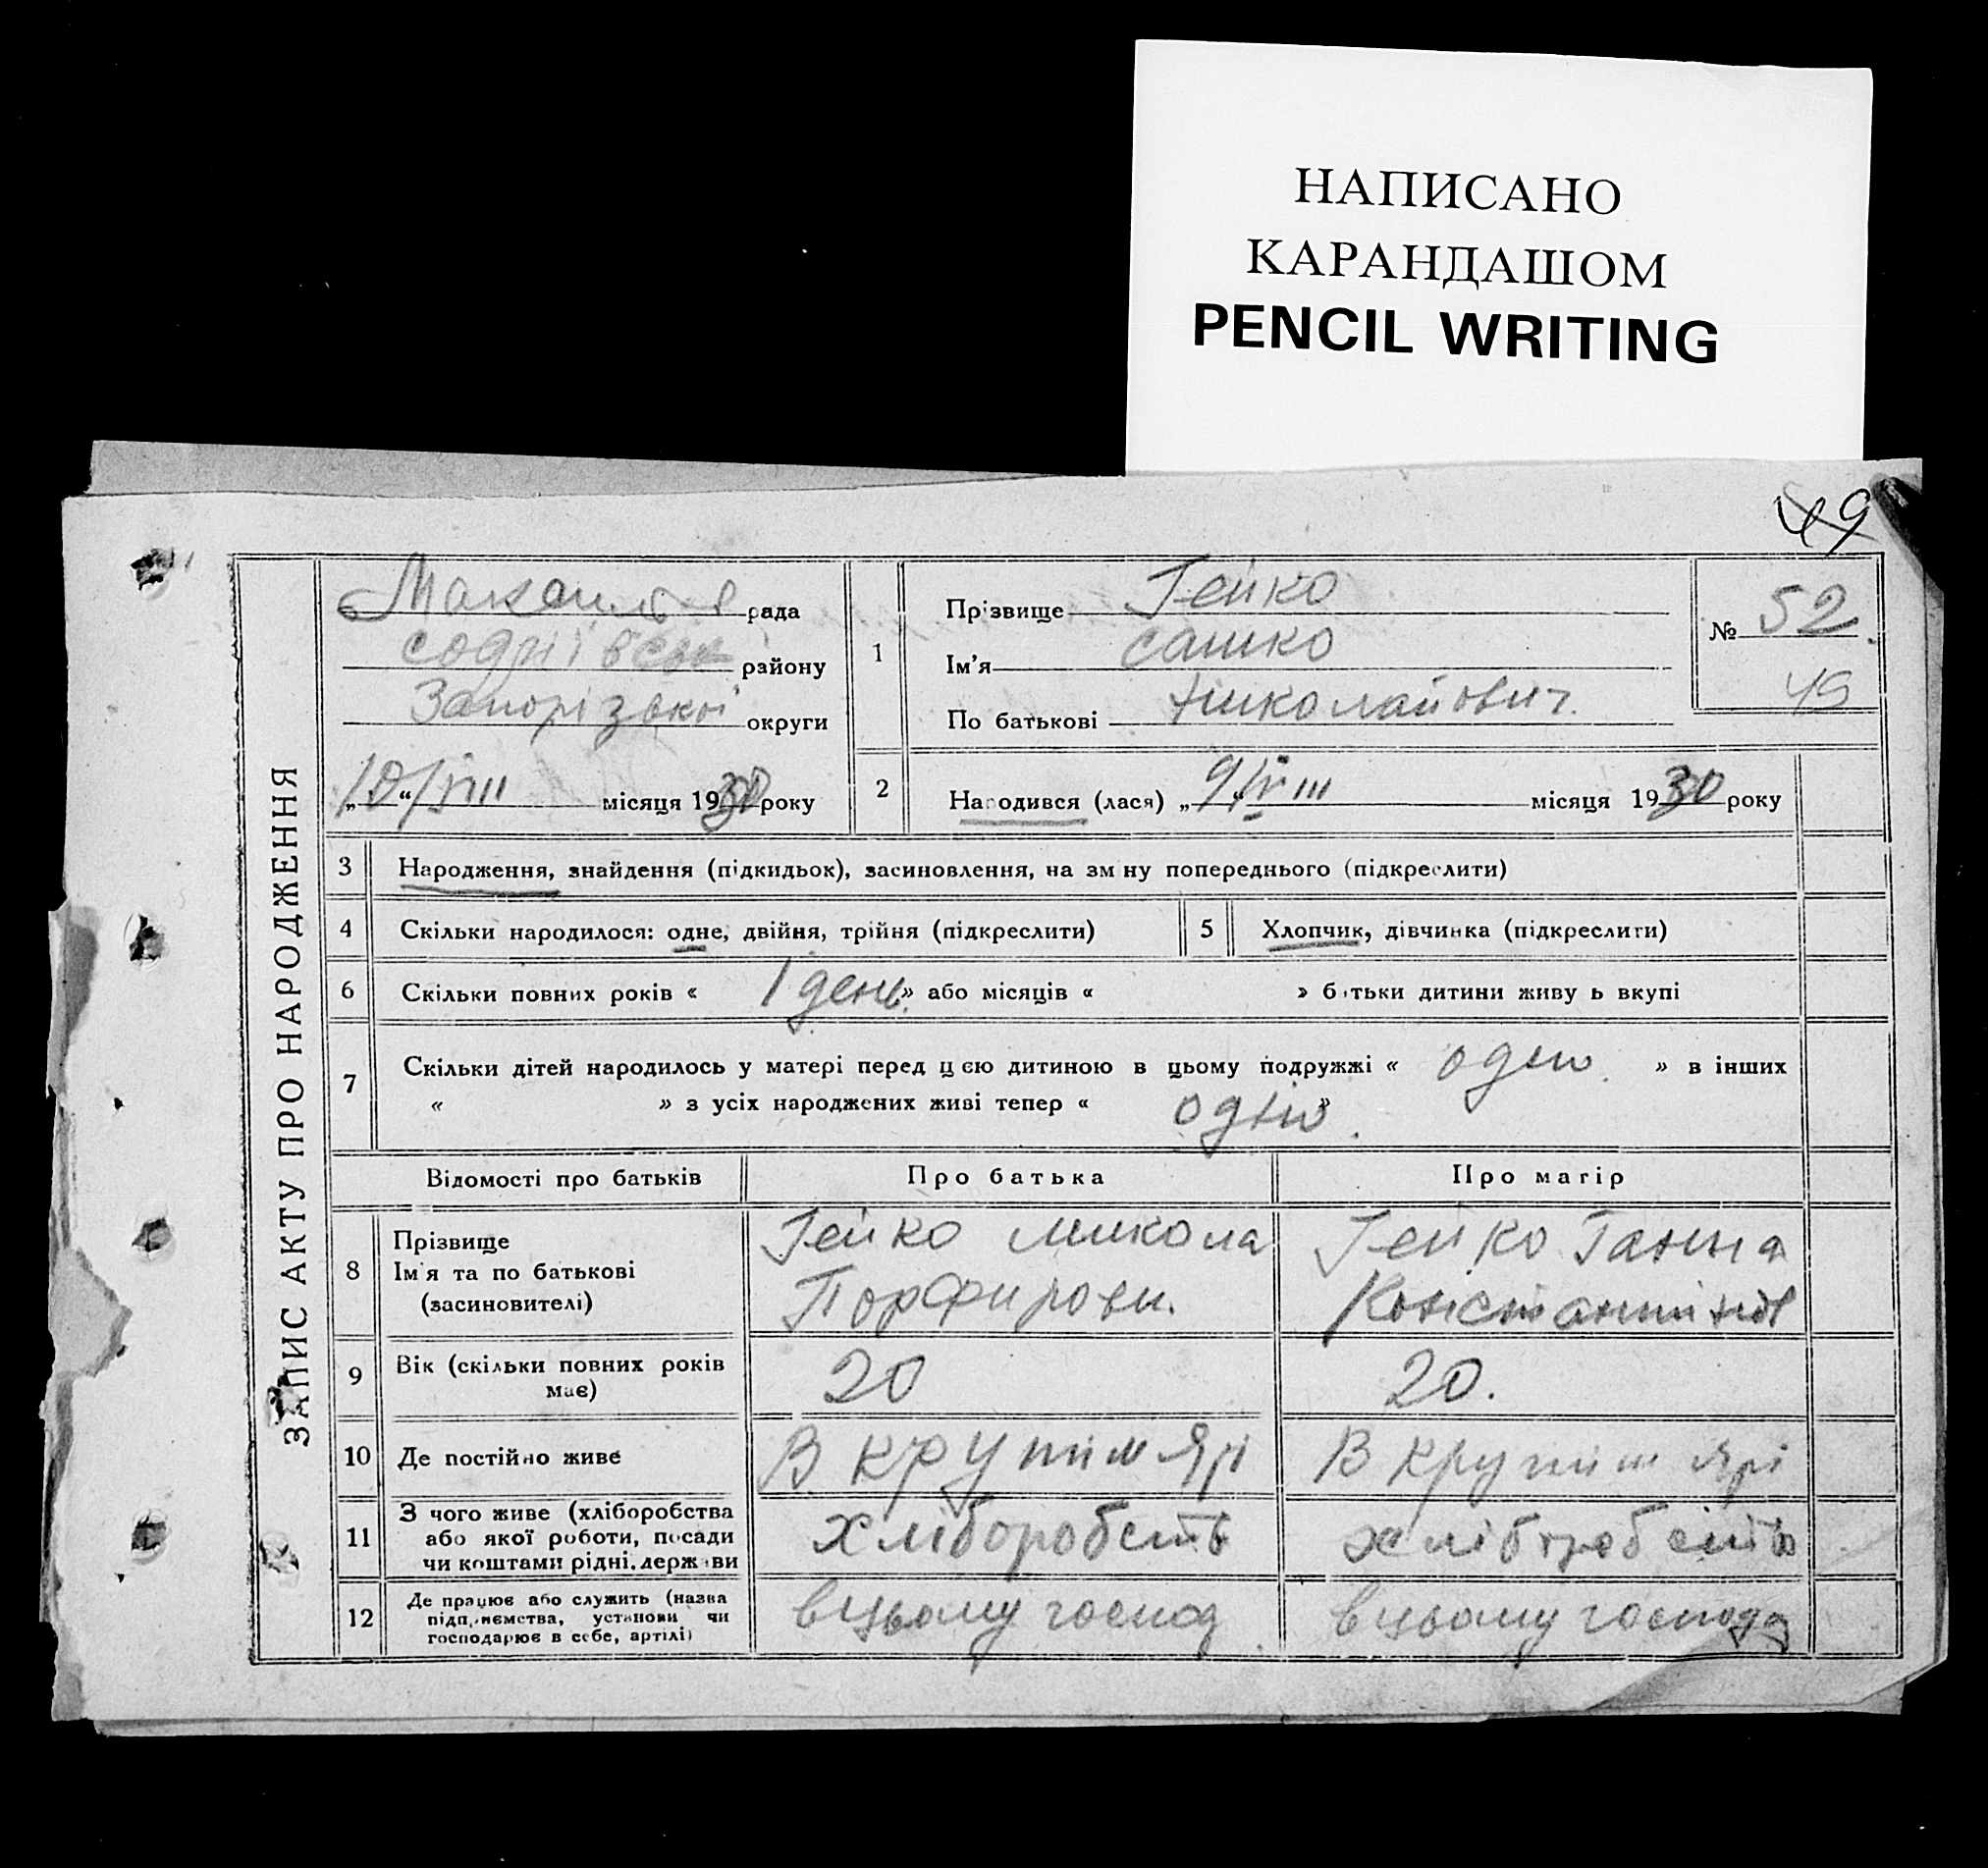 НАПИСАНО
КАРАНДАШОМ
PENCIL WRITING
49
ЗАПИС АКТУ ПРО НАРОДЖЕННЯ
рада
району
Запорізької округи
„10“ VIII місяця 1930 року
1
Прізвище Гейко
Ім'я Сашко
По батькові Николайович.
№ 52.
49
2
Народився (лася) „9“ VIII місяця 1930 року
3 Народження, знайдення (підкидьок), засиновлення, на зміну попереднього (підкреслити)
4 Скільки народилося: одне, двійня, трійня (підкреслити)
5 Хлопчик, дівчинка (підкреслити)
6 Скільки повних років « 1 день » або місяців « » батьки дитини живуть вкупі
7 Скільки дітей народилось у матері перед цією дитиною в цьому подружжі « » в інших
« » з усіх народжених живі тепер « »
Відомості про батьків Про батька Про матір
8
Прізвище
Ім'я та по батькові
(засиновителі)
Гейко Микола
Порфирови.
Гейко Ганна
Константинов
9
Вік (скільки повних років
має)
20
20.
10 Де постійно живе
В Крутім Ярі
В Крутім Ярі
11
З чого живе (хліборобства
або якої роботи, посади
чи коштами рідні, держави
хліборобств
хліборобств
12
Де працює або служить (назва
підприємства, установи чи
господарює в себе, артілі)
в цьому господ
в цьому господа